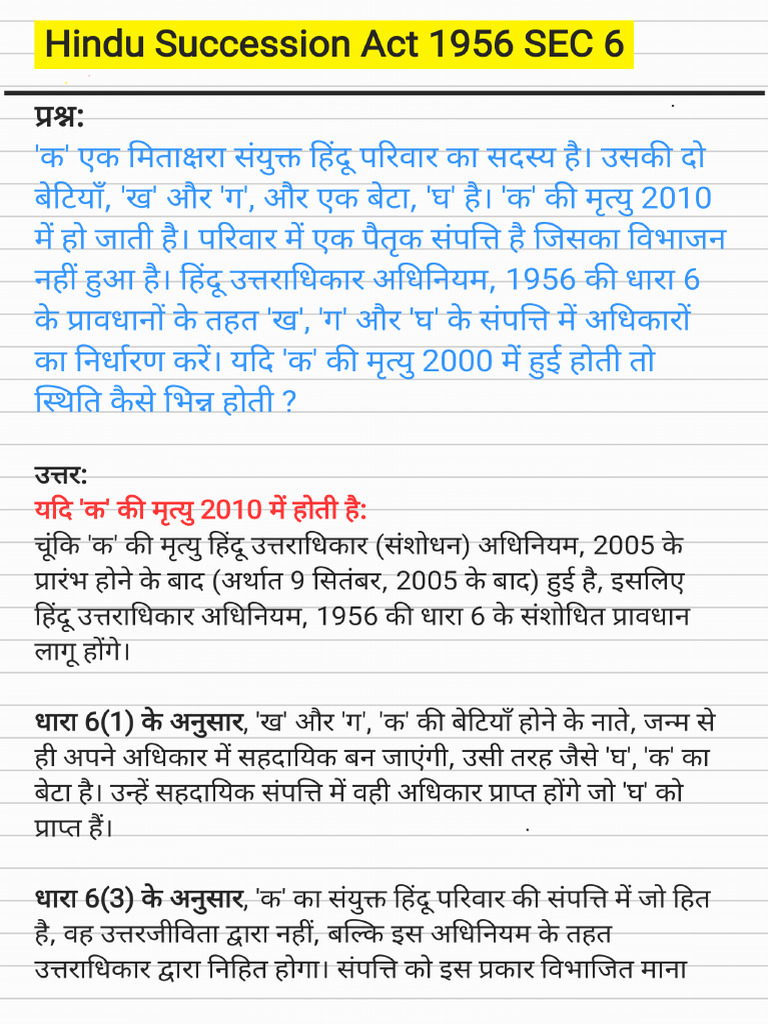 Hindu Succession Act 1956 SEC 6
प्रश्न:
'क' एक मिताक्षरा संयुक्त हिंदू परिवार का सदस्य है। उसकी दो
बेटियाँ, 'ख' और 'ग', और एक बेटा, 'घ' है। 'क' की मृत्यु 2010
में हो जाती है। परिवार में एक पैतृक संपत्ति है जिसका विभाजन
नहीं हुआ है। हिंदू उत्तराधिकार अधिनियम, 1956 की धारा 6
के प्रावधानों के तहत 'ख', 'ग' और 'घ' के संपत्ति में अधिकारों
का निर्धारण करें। यदि 'क' की मृत्यु 2000 में हुई होती तो
स्थिति कैसे भिन्न होती ?
उत्तर:
यदि 'क' की मृत्यु 2010 में होती है:
चूंकि 'क' की मृत्यु हिंदू उत्तराधिकार (संशोधन) अधिनियम, 2005 के
प्रारंभ होने के बाद (अर्थात 9 सितंबर, 2005 के बाद) हुई है, इसलिए
हिंदू उत्तराधिकार अधिनियम, 1956 की धारा 6 के संशोधित प्रावधान
लागू होंगे।
धारा 6(1) के अनुसार, 'ख' और 'ग', 'क' की बेटियाँ होने के नाते, जन्म से
ही अपने अधिकार में सहदायिक बन जाएंगी, उसी तरह जैसे 'घ', 'क' का
बेटा है। उन्हें सहदायिक संपत्ति में वही अधिकार प्राप्त होंगे जो 'घ' को
प्राप्त हैं।
धारा 6(3) के अनुसार, 'क' का संयुक्त हिंदू परिवार की संपत्ति में जो हित
है, वह उत्तरजीविता द्वारा नहीं, बल्कि इस अधिनियम के तहत
उत्तराधिकार द्वारा निहित होगा। संपत्ति को इस प्रकार विभाजित माना